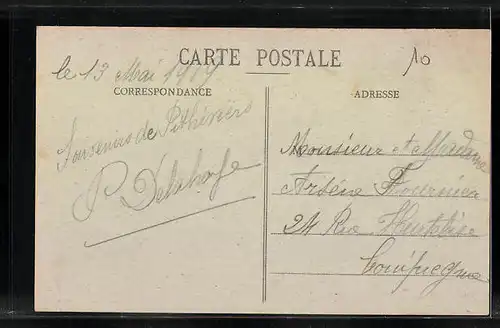 CARTE POSTALE
10
le 13 Mai 1919
CORRESPONDANCE
ADRESSE
Souvenirs de Pithiviers
P. Delahaye
Monsieur et Madame
Arsène Fournier
24 Rue
Compiègne